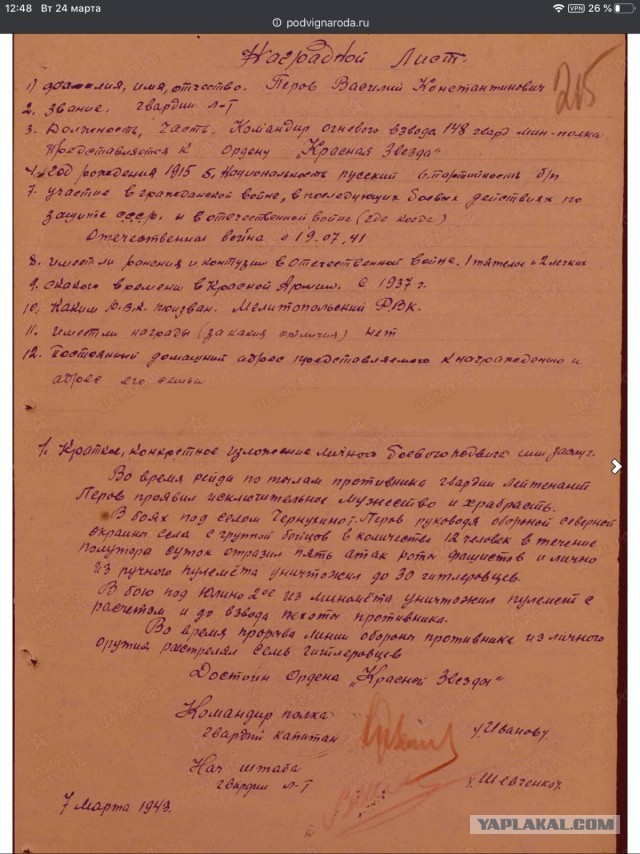 12:48 Вт 24 марта
VPN 26 %
podvignaroda.ru
Наградной Лист.
215
1) фамилия, имя, отчество. Перов Василий Константинович
2. Звание. гвардии л-т
3. Должность, часть. Командир огневого взвода 148 гвард мин-полка
Представляется к Ордену „Красная Звезда“
4. год рождения 1915 5. Национальность русский 6. партийность б/п
7. участие в гражданской войне, в последующих боевых действиях по
защите СССР. и в отечественной войне (где когда)
Отечественная война с 19.07.41
8. имеет ли ранения и контузии в Отечественной войне. 1 тяжелое и 2 легких
9. с какого времени в Красной Армии. с 1937 г.
10. Каким Р.В.К. призван. Мелитопольский РВК.
11. имеет ли награды (за какие отличия) нет
12. Постоянный домашний адрес представляемого к награждению и
адрес его семьи
1. Краткое, конкретное изложение личного боевого подвига или заслуг.
Во время рейда по тылам противника гвардии лейтенант
Перов проявил исключительное мужество и храбрасть.
В боях под селом Чернухино т. Перов руководя обороной северной
окраины села с группой бойцов в количестве 12 человек в течение
полутора суток отразил пять атак роты фашистов и лично
из ручного пулемёта уничтожил до 30 гитлеровцев.
В бою под Юлино 2ое из миномёта уничтожил пулемет с
расчетом и до взвода пехоты противника.
Во время прорыва линии обороны противника из личного
оружия расстрелял семь гитлеровцев
Достоин Ордена „Красной Звезды“
Командир полка
гвардии капитан /Иванов/.
Нач штаба
гвардии л-т /Шевченко/.
7 марта 1943.
YAPLAKAL.COM